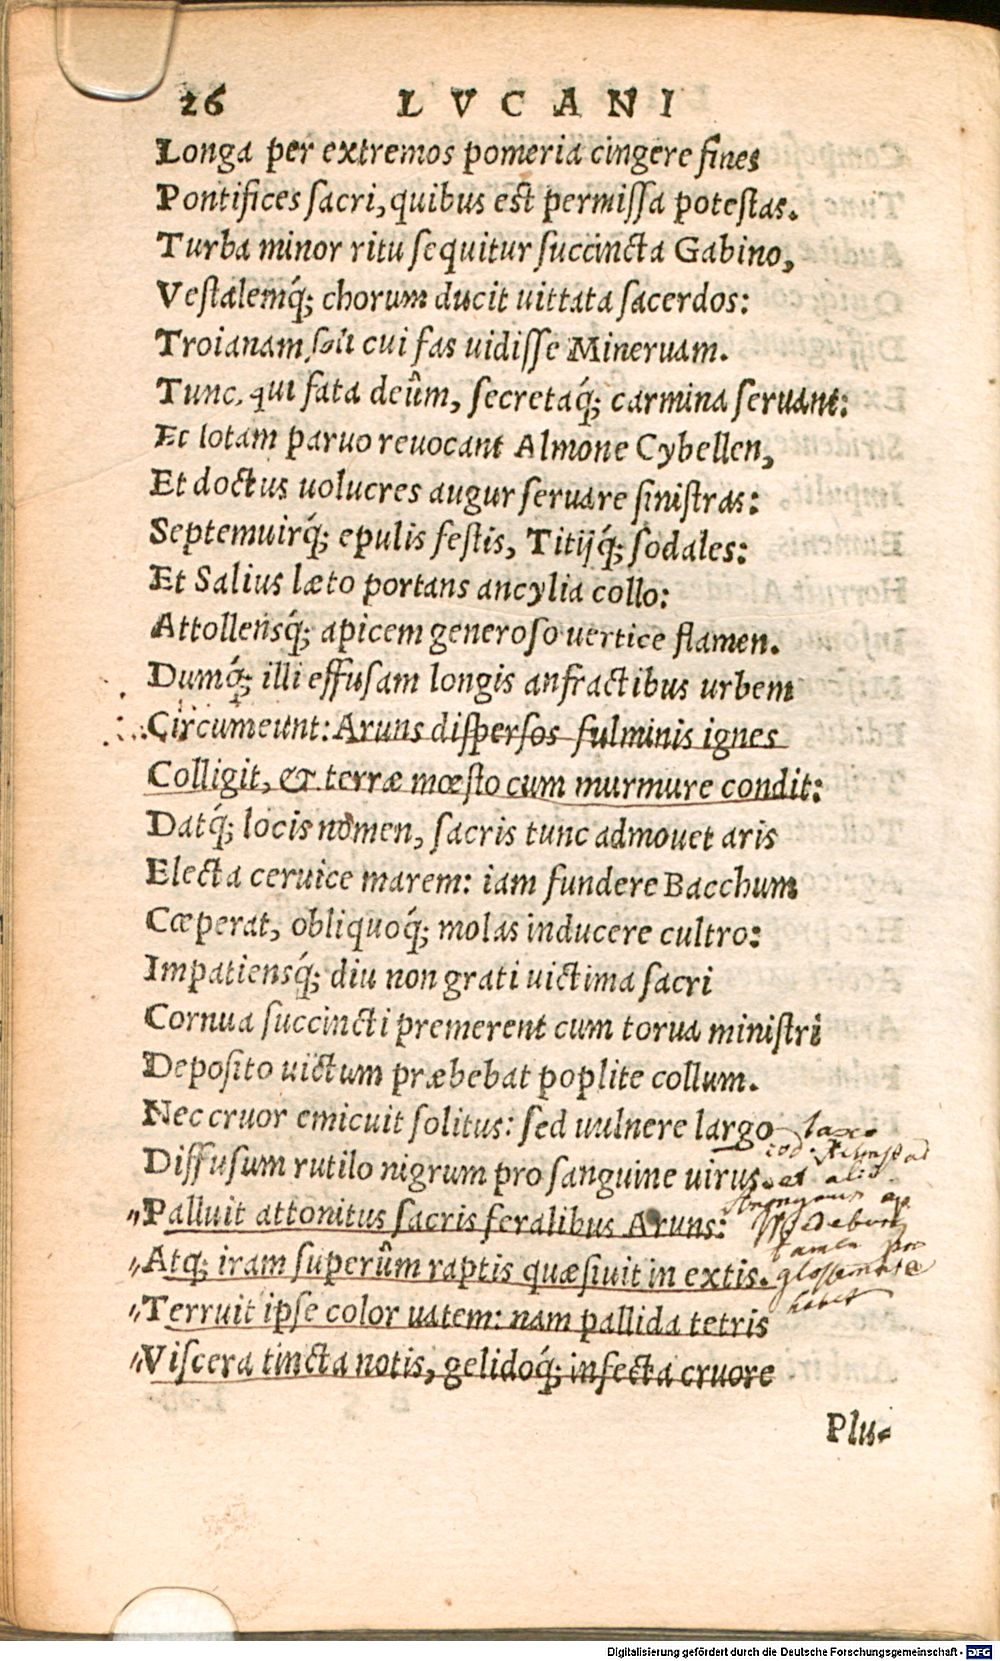 26 LVCANI
Longa per extremos pomeria cingere fines
Pontifices sacri, quibus est permissa potestas.
Turba minor ritu sequitur succincta Gabino,
Vestalemq́; chorum ducit uittata sacerdos:
Troianam soli cui fas uidisse Mineruam.
Tunc, qui fata deûm, secretaq́; carmina seruant:
Et lotam paruo reuocant Almone Cybellen,
Et doctus uolucres augur seruare sinistras:
Septemuirq́; epulis festis, Titijq́; sodales:
Et Salius læto portans ancylia collo:
Attollensq́; apicem generoso uertice flamen.
Dumq́; illi effusam longis anfractibus urbem
Circumeunt: Aruns dispersos fulminis ignes
Colligit, & terræ mœsto cum murmure condit:
Datq́; locis nomen, sacris tunc admouet aris
Electa ceruice marem: iam fundere Bacchum
Cœperat, obliquoq́; molas inducere cultro:
Impatiensq́; diu non grati uictima sacri
Cornua succincti premerent cum torua ministri
Deposito uictum præbebat poplite collum.
Nec cruor emicuit solitus: sed uulnere largo
laxo
Diffusum rutilo nigrum pro sanguine uirus.
et alii
Palluit attonitus sacris feralibus Aruns:
Atq; iram superûm raptis quæsiuit in extis.
tamen pro
glossemate
habet
Terruit ipse color uatem: nam pallida tetris
Viscera tincta notis, gelidoq́; infecta cruore
Plu-
Digitalisierung gefördert durch die Deutsche Forschungsgemeinschaft - DFG